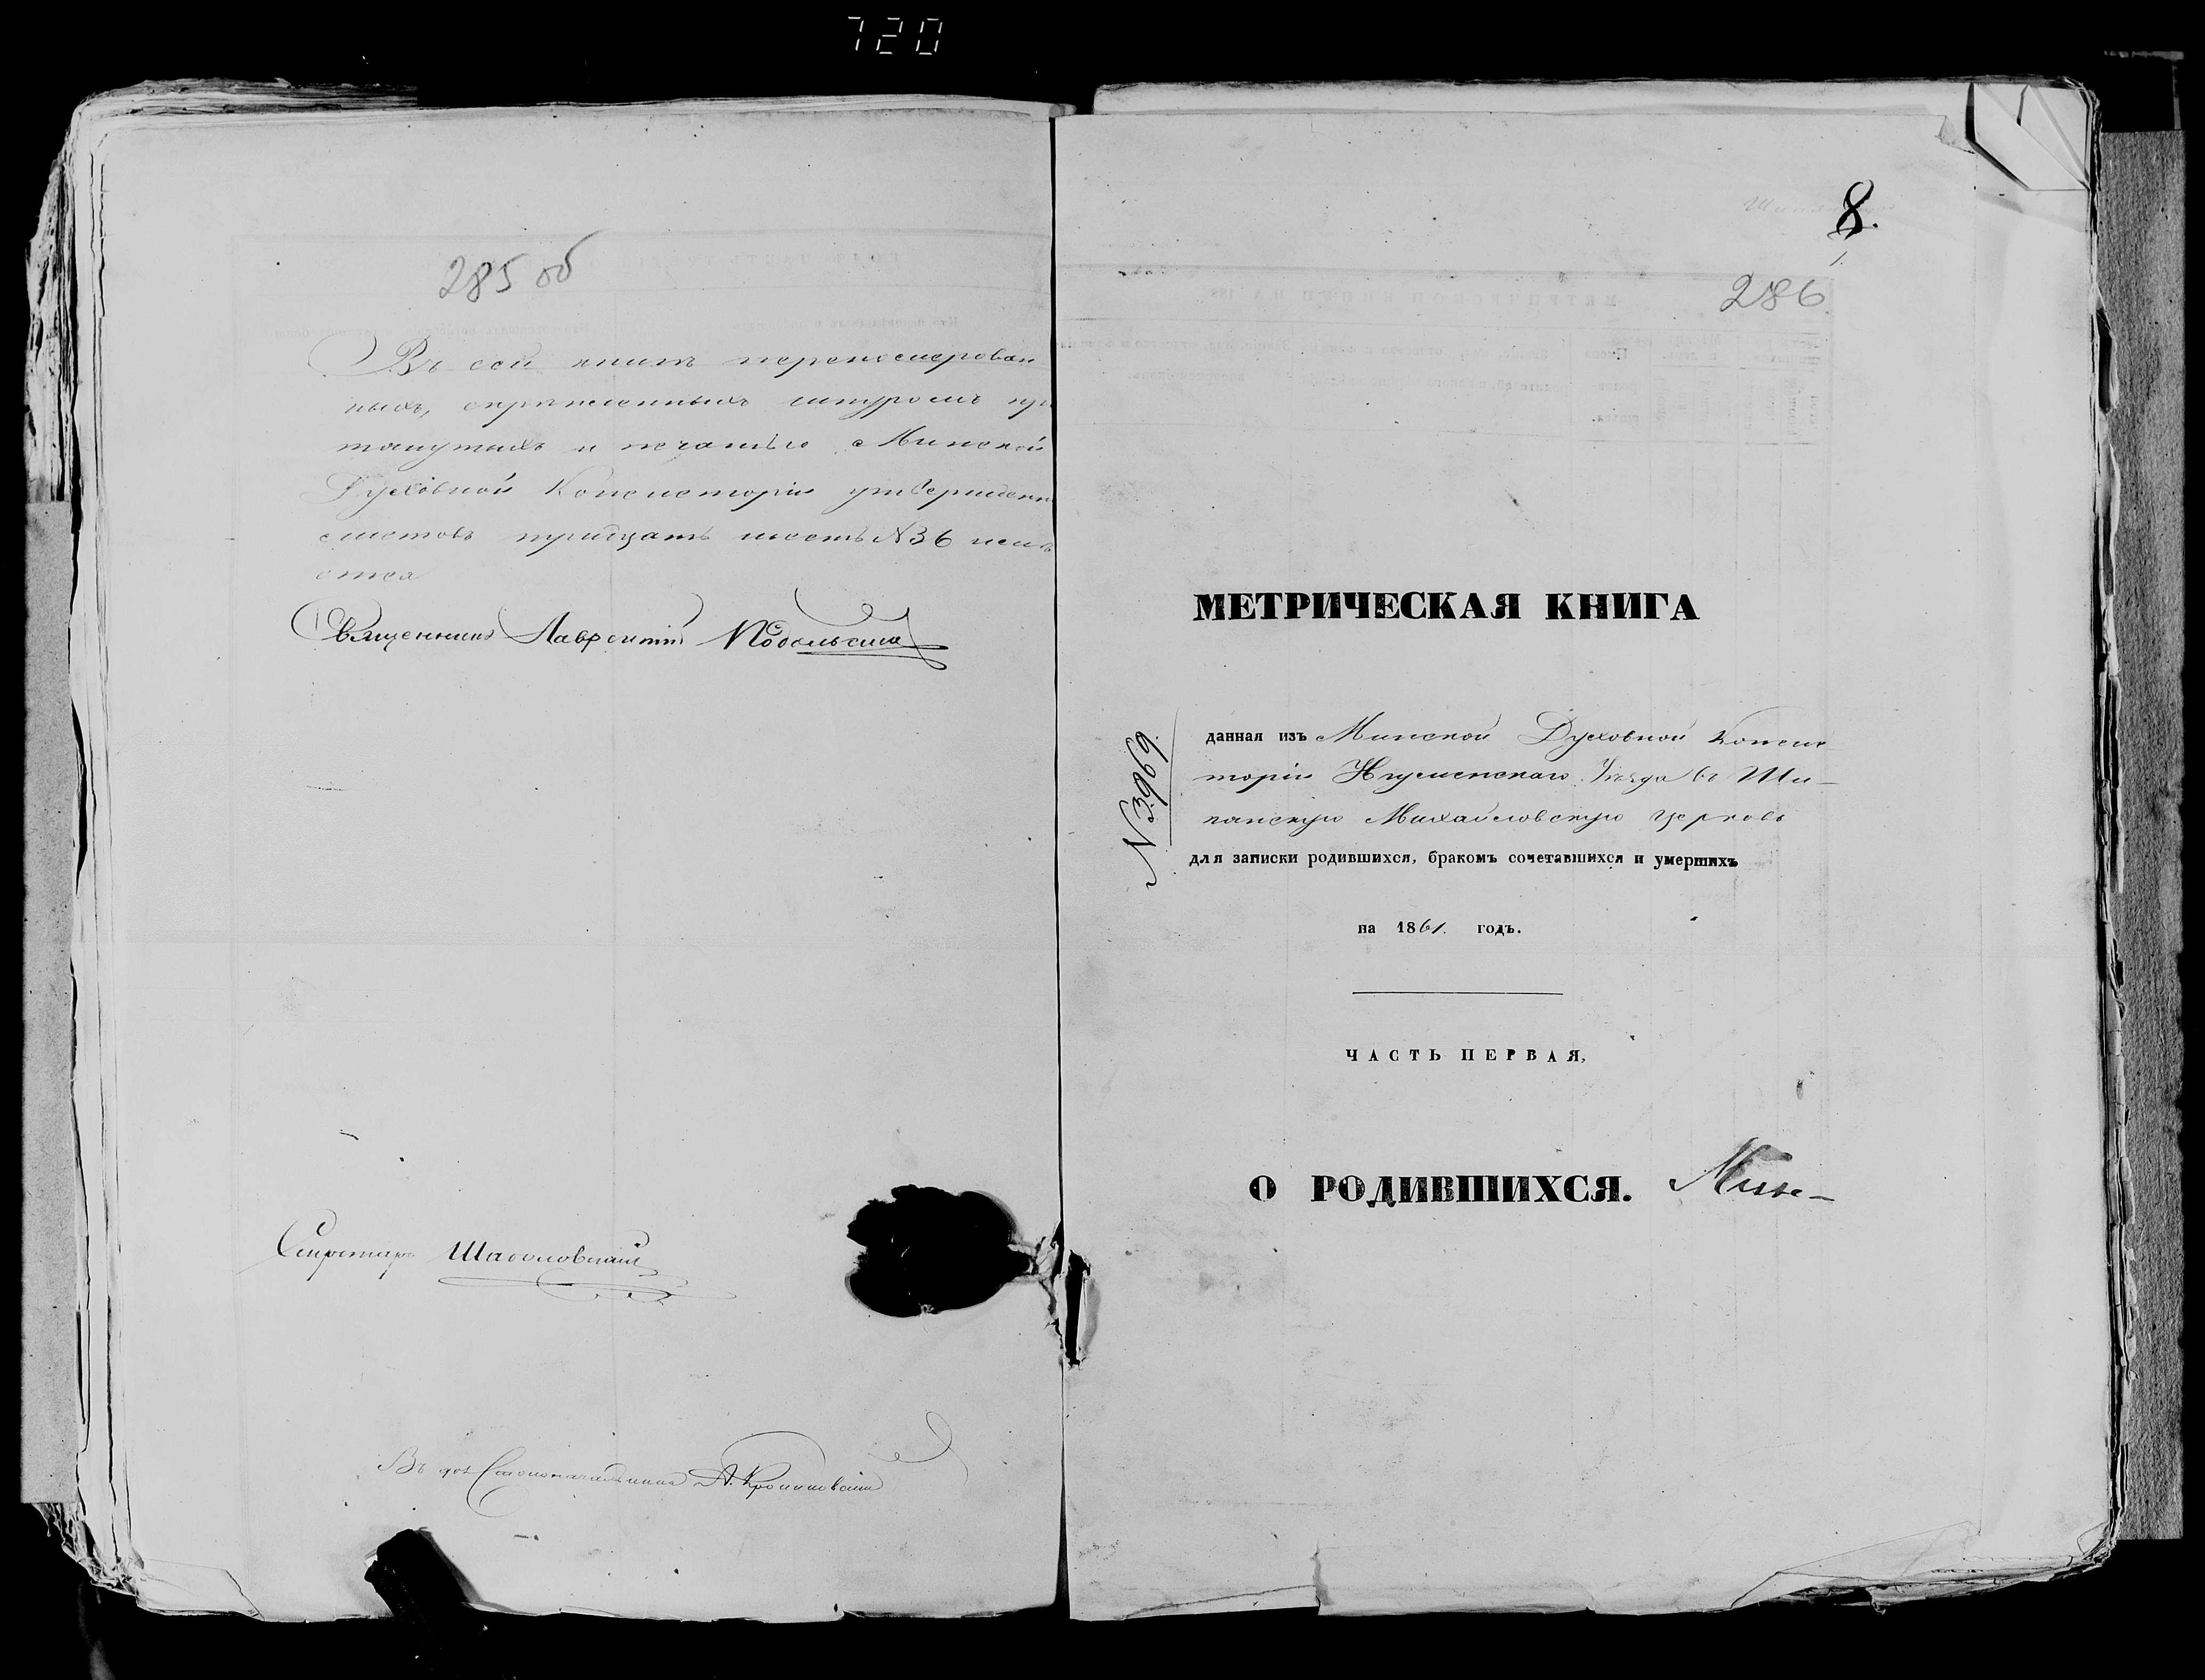 720
285 об
Въ сей книгѣ перенумерован
ныхъ, скрѣпленныхъ шнуромъ про
тянутыхъ и печатью Минской
Духовной Консисторіи утвержденн
листовъ тридцать шесть N36 имѣ
ется
Священникъ Лаврентій Подольскій
Секретарь
Въ дол Столоначальника А.
8.
1.
286
МЕТРИЧЕСКАЯ КНИГА
N 3969.
данная изъ Минской Духовной Консис
торіи Игуменскаго Уѣзда въ Ши-
панскую Михайловскую церковь
для записки родившихся, бракомъ сочетавшихся и умершихъ
на 1861. годъ.
ЧАСТЬ ПЕРВАЯ,
О РОДИВШИХСЯ.